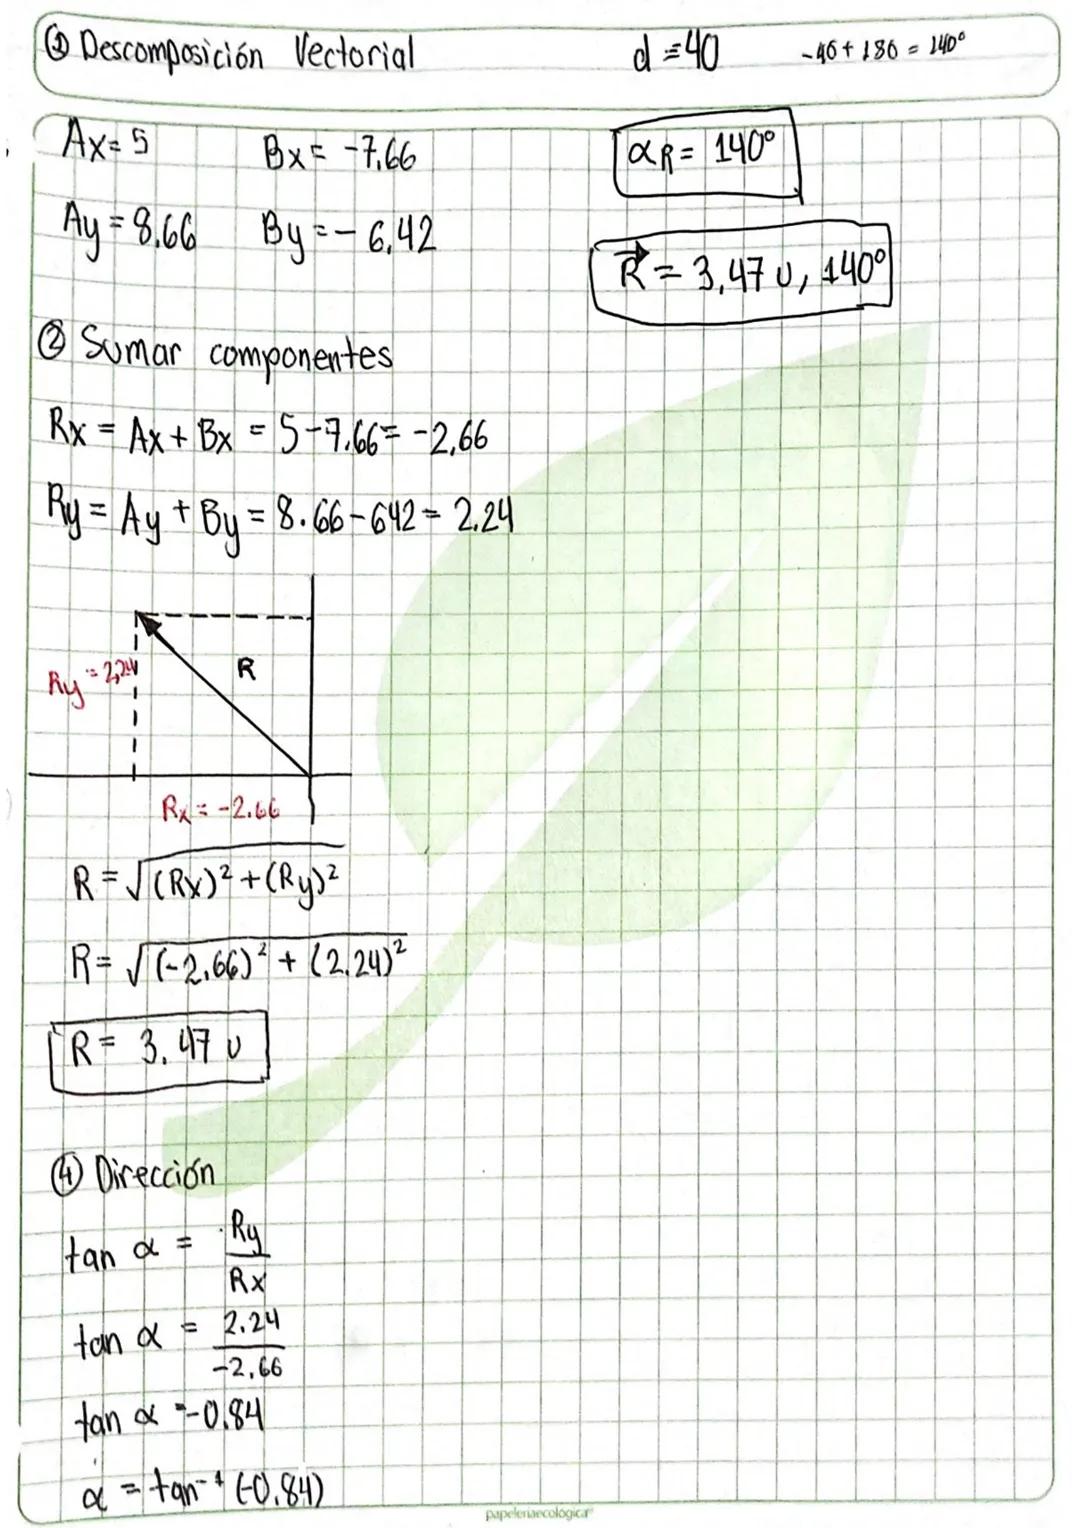 ① Descomposición Vectorial
d = 40
-40 + 180 = 140°
Ax = 5
Bx = -7,66
αR = 140°
Ay = 8,66
By = - 6,42
R = 3,47 u, 140°
② Sumar componentes
Rx = Ax + Bx = 5 - 7,66 = -2,66
Ry = Ay + By = 8.66 - 642 = 2.24
Ry = 2,24
R
Rx = -2.66
R = √(Rx)² + (Ry)²
R = √(-2,66)² + (2.24)²
R = 3.47 u
④ Dirección
tan α = Ry
Rx
tan α = 2.24
-2,66
tan α = -0.84
α = tan⁻¹ (-0.84)
papeleriaecológica